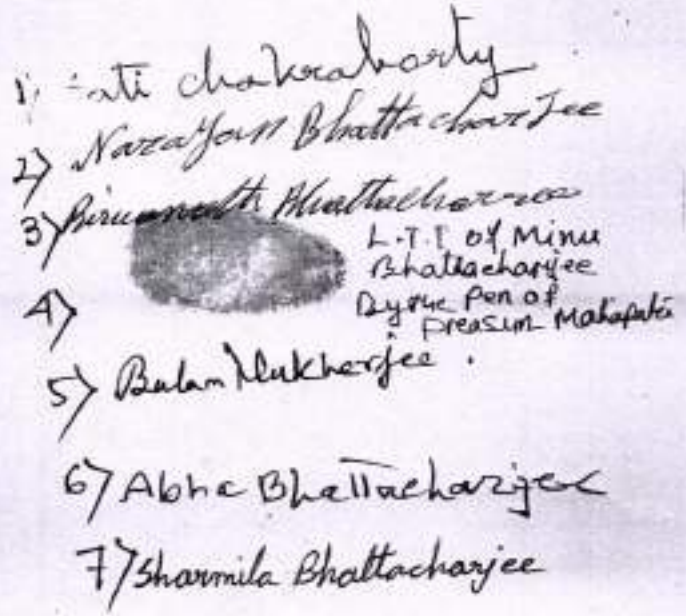 1) ati chakraborty
2) Narayan Bhattacharjee
3) Bhattacharjee
L.T.I of Minu
Bhattacharjee
4) By the Pen of
Mahapatra
5) Balam Mukherjee.
6) Abha Bhattacharjee
7) Sharmila Bhattacharjee